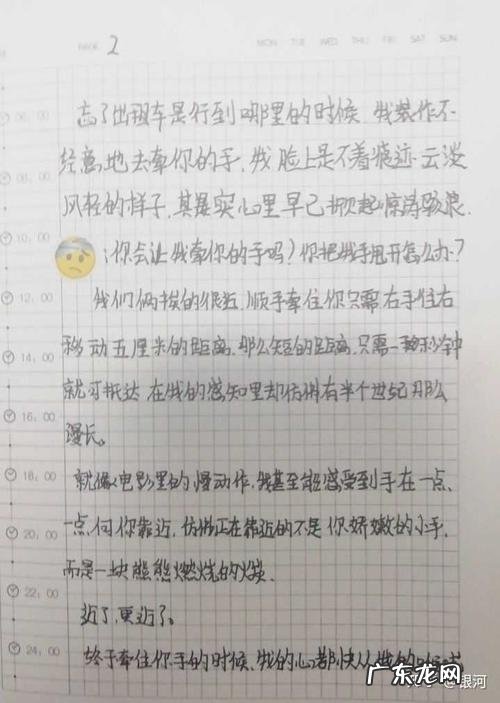 PAGE 2 MON TUE WED THU FRI SAT SUN
忘了出租车是行到哪里的时候,我装作不
经意地去牵你的手,我脸上是不着痕迹云淡
风轻的样子,其是实心里早已掀起惊涛骇浪.
(你会让我牵你的手吗?你把我手甩开怎么办?
我们俩挨的很近,顺手牵住你只需右手往右
移动五厘米的距离,那么短的距离,只需一秒钟
就可抵达 在我的感知里却仿佛有半个世纪那么
漫长。
就像电影里的慢动作,我甚至能感受到手在一点、
一点向你靠近,仿佛正在靠近的不是你娇嫩的小手,
而是一块熊熊燃烧的火炭.
近了,更近了。
终于牵住你手的时候,我的心都快从我的
06:00
08:00
10:00
12:00
14:00
16:00
18:00
20:00
22:00
24:00
@银河
广东龙网